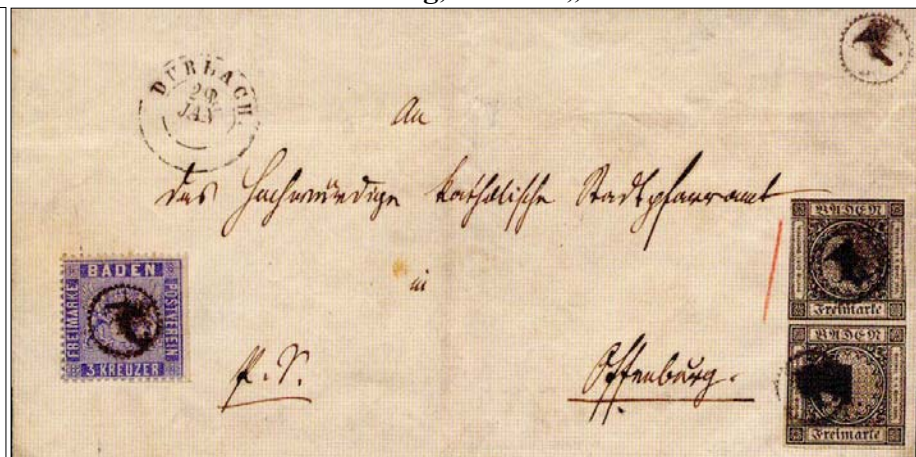 DURLACH
JAN
An
das Hochwürdige katholische Stadtpfarramt
in
Offenburg.
BADEN
FREIMARKE
POSTVEREIN
3 KREUZER
BADEN
Freimarke
BADEN
Freimarke